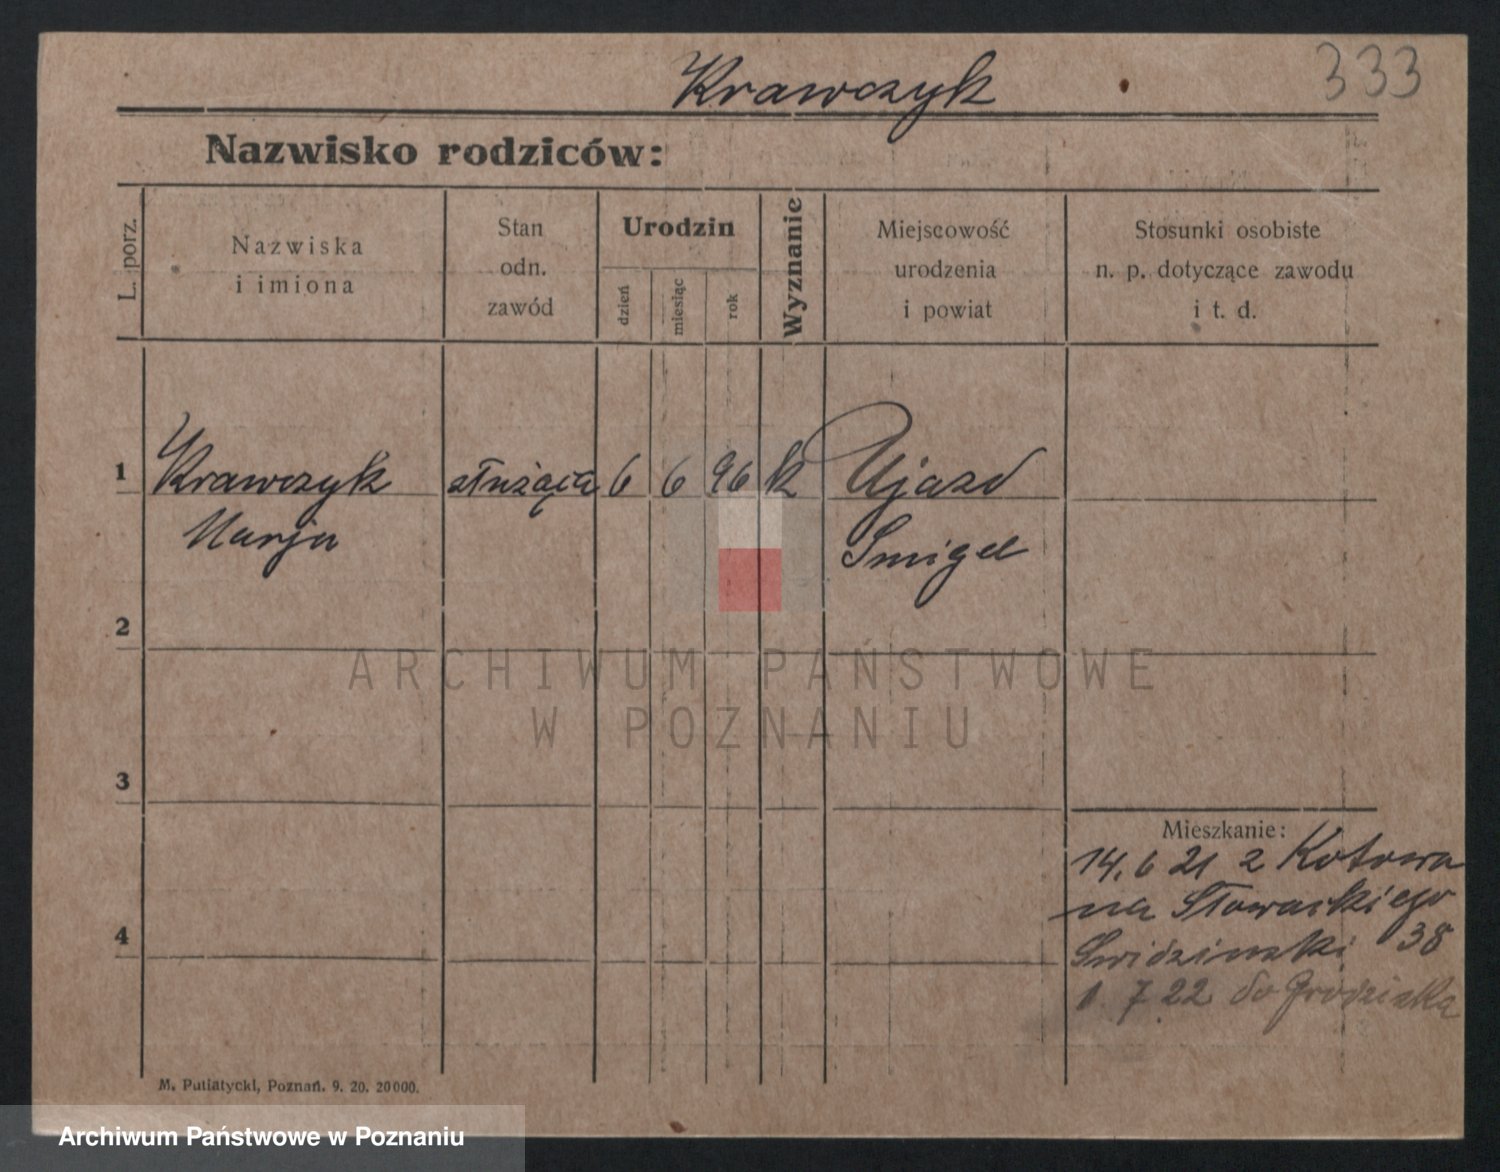 Krawczyk
333
Nazwisko rodziców:
L. porz.
Nazwiska
i imiona
Stan
odn.
zawód
Urodzin
dzień
miesiąc
rok
Wyznanie
Miejscowość
urodzenia
i powiat
Stosunki osobiste
n. p. dotyczące zawodu
i t. d.
1 Krawczyk służąca 6 6 96 k Ujazd
Marja Smigel
2
3
4
ARCHIWUM PAŃSTWOWE
W POZNANIU
Mieszkanie:
14. 6 21 z Kotowa
na Słowackiego
Swidzinski 38
1. 7 22 do Grodziska
M. Putiatycki, Poznań. 9. 20. 20000.
Archiwum Państwowe w Poznaniu